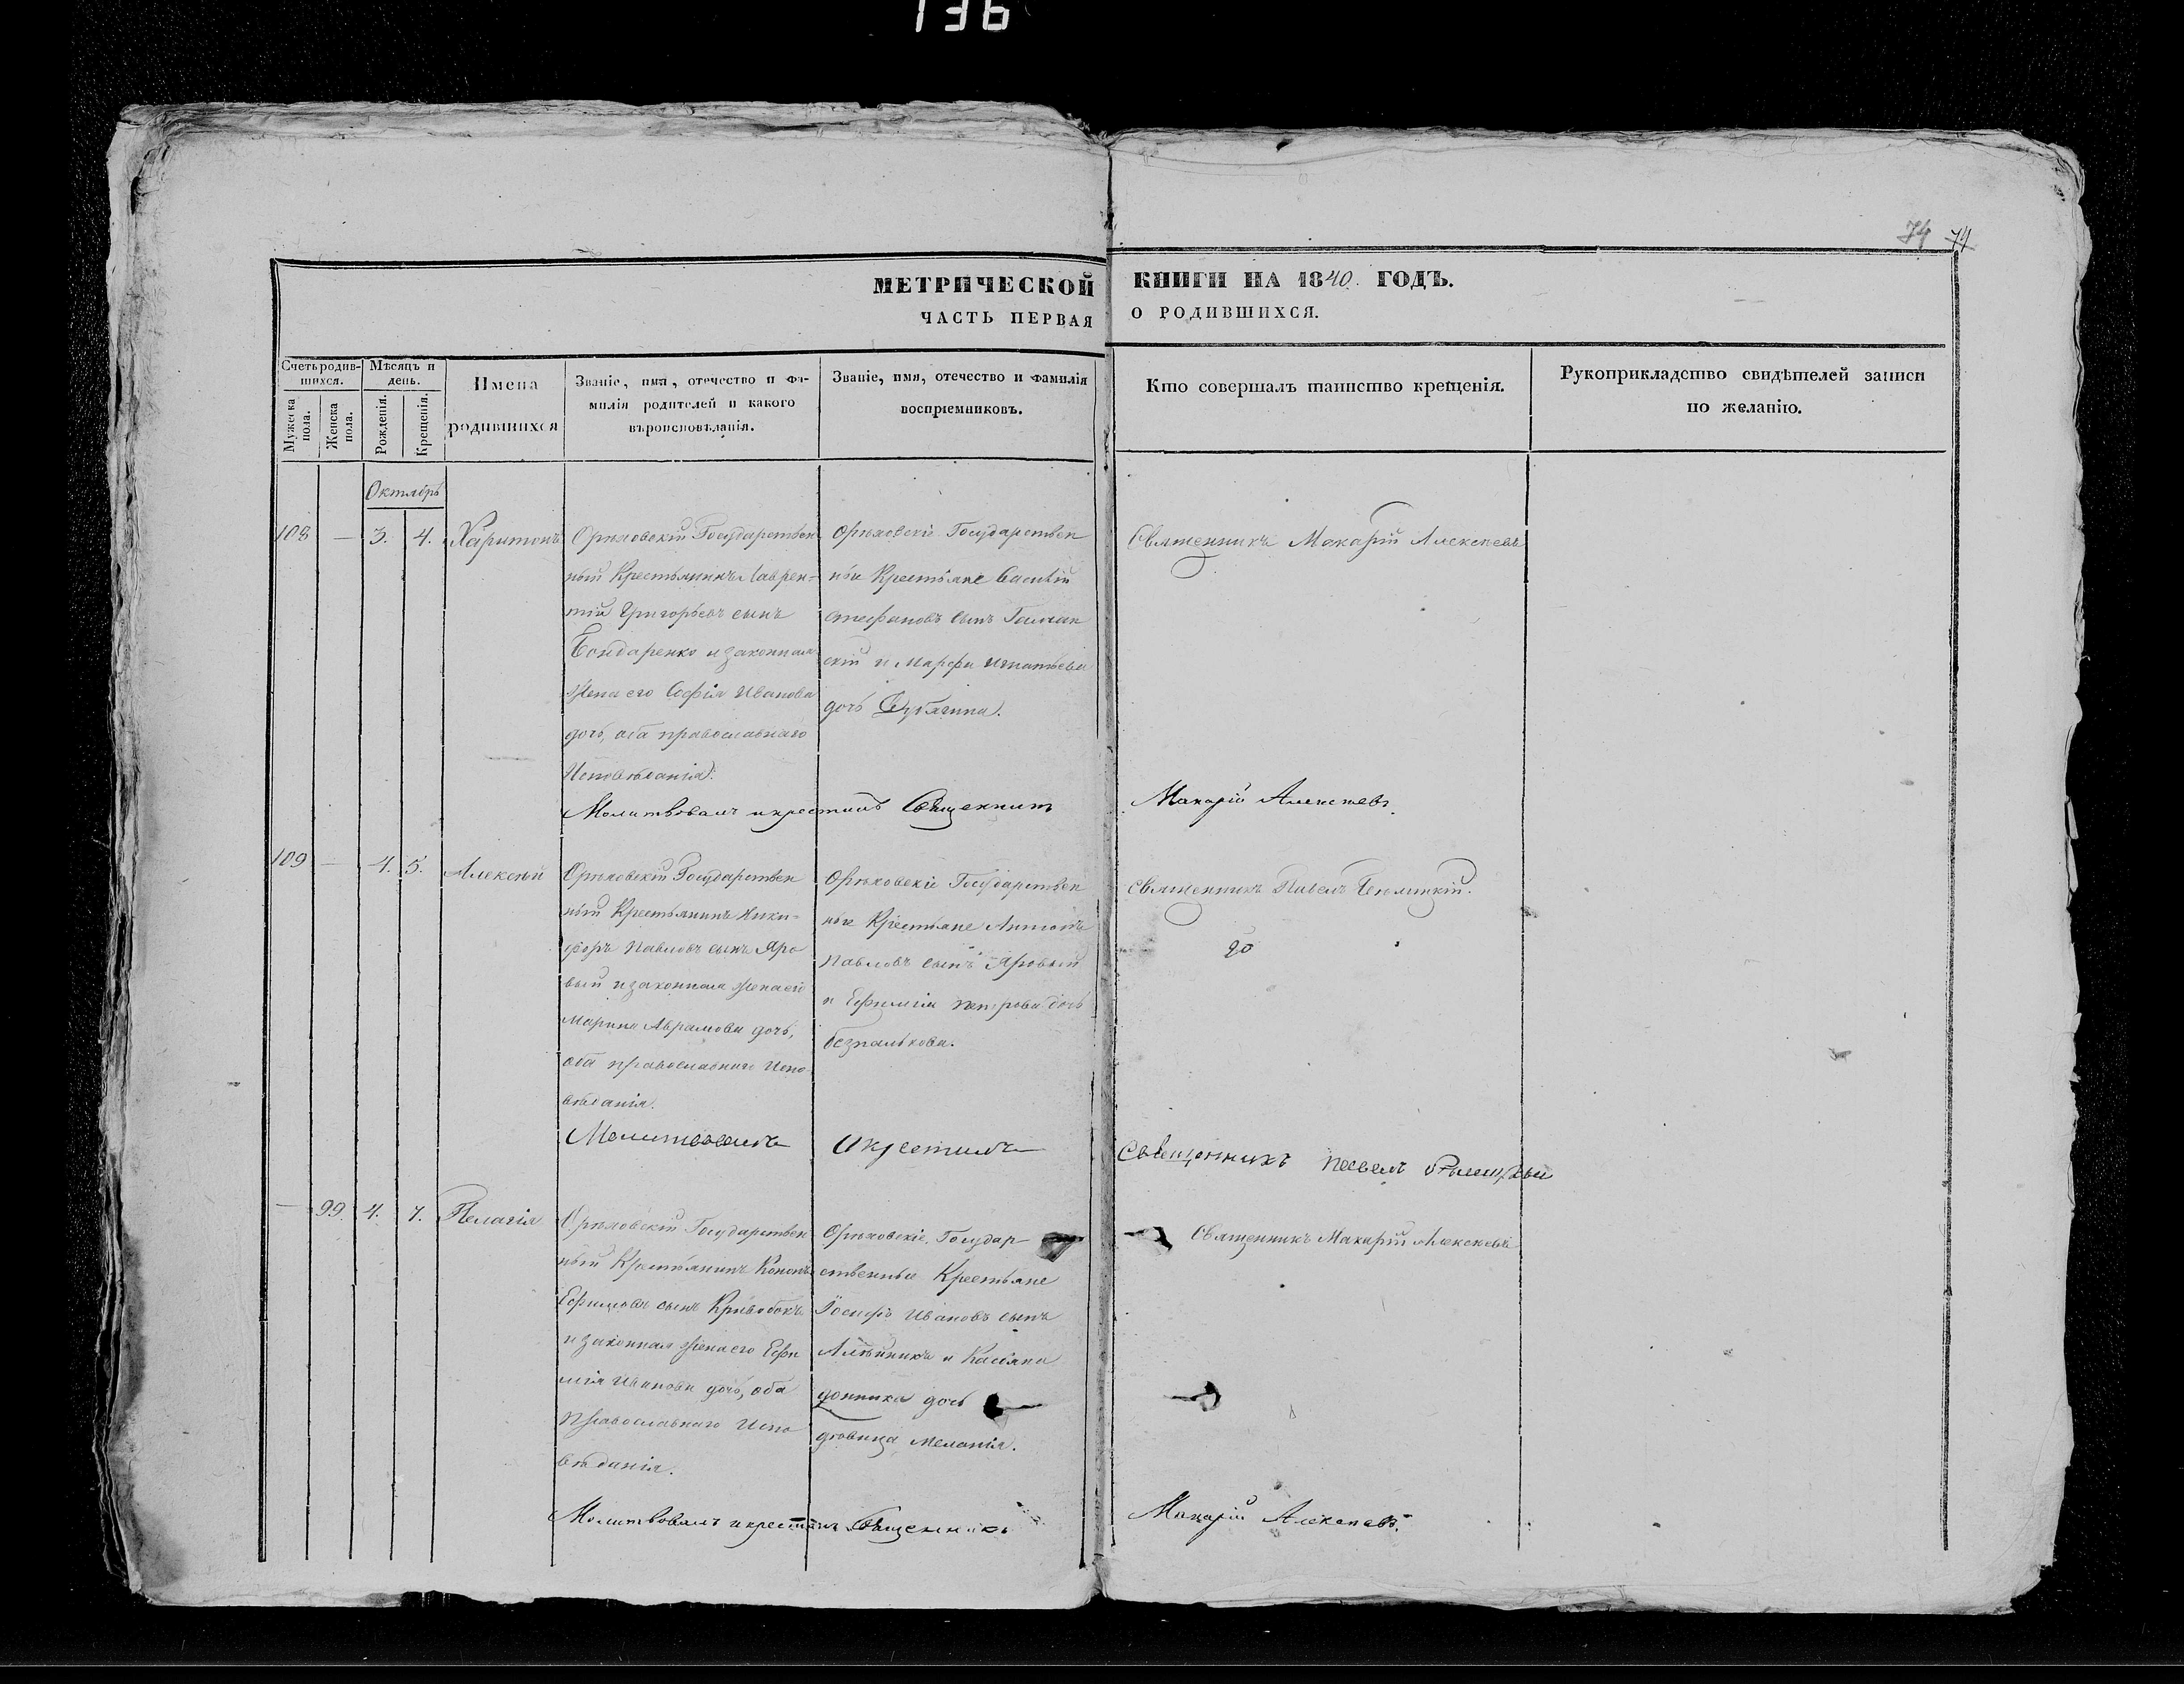 136
74 74
МЕТРИЧЕСКОЙ КНИГИ НА 1840. ГОДЪ.
ЧАСТЬ ПЕРВАЯ О РОДИВШИХСЯ.
Счетъ родив-
шихся.
Мужеска
пола.
Женска
пола.
Мѣсяцъ и
день.
Рожденія.
Крещенія.
Имена
родившихся
Званіе, имя, отечество и фа-
милія родителей и какого
вѣроисповѣданія.
Званіе, имя, отечество и фамилія
воспріемниковъ.
Кто совершалъ таинство крещенія.
Рукоприкладство свидѣтелей записи
по желанію.
Октябрь
108 — 3. 4. Харитонъ
Орѣховскій Государствен
ный Крестьянинъ Лаврен=
тій Григорьевъ сынъ
Бондаренко и законная
жена его Софія Иванова
дочь, оба православнаго
Исповѣданія.
Орѣховскіе Государствен
ные Крестьяне Василій
Стефановъ сынъ
скій и Марфа Игнатьева
дочь
Священникъ Макарій Алексѣевъ
Молитвовалъ и крестилъ Священникъ Макарій Алексѣевъ.
109 — 4. 5. Алексѣй
Орѣховскій Государствен
ный Крестьянинъ Ники=
форъ Павловъ сынъ Яро
вый и законная жена его
Марина Аврамова дочь,
оба православнаго Испо
вѣданія.
Орѣховскіе Государствен
ные Крестьяне Антонъ
Павловъ сынъ Яровый
и Ефимія Петрова дочь
Безпалькова.
Священникъ Павелъ
Молитвовалъ и крестилъ Священникъ Павелъ
— 99. 4. 7. Пелагія
Орѣховскій Государствен
ный Крестьянинъ Кононъ
Ефимовъ сынъ Кривобокъ
и законная жена его Ефи
мія Иванова дочь, оба
Православнаго Испо
вѣданія.
Орѣховскіе Государ
ственные Крестьяне
Іосифъ Ивановъ сынъ
и Касьяна
дочь
вдовица Меланія.
Священникъ Макарій Алексѣевъ
Молитвовалъ и крестилъ Священникъ Макарій Алексѣевъ.